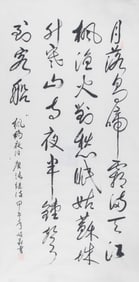 月落乌啼霜满天江
枫渔火对愁眠姑苏城
外寒山寺夜半钟声
到客船
枫桥夜泊 唐张继诗 甲午年